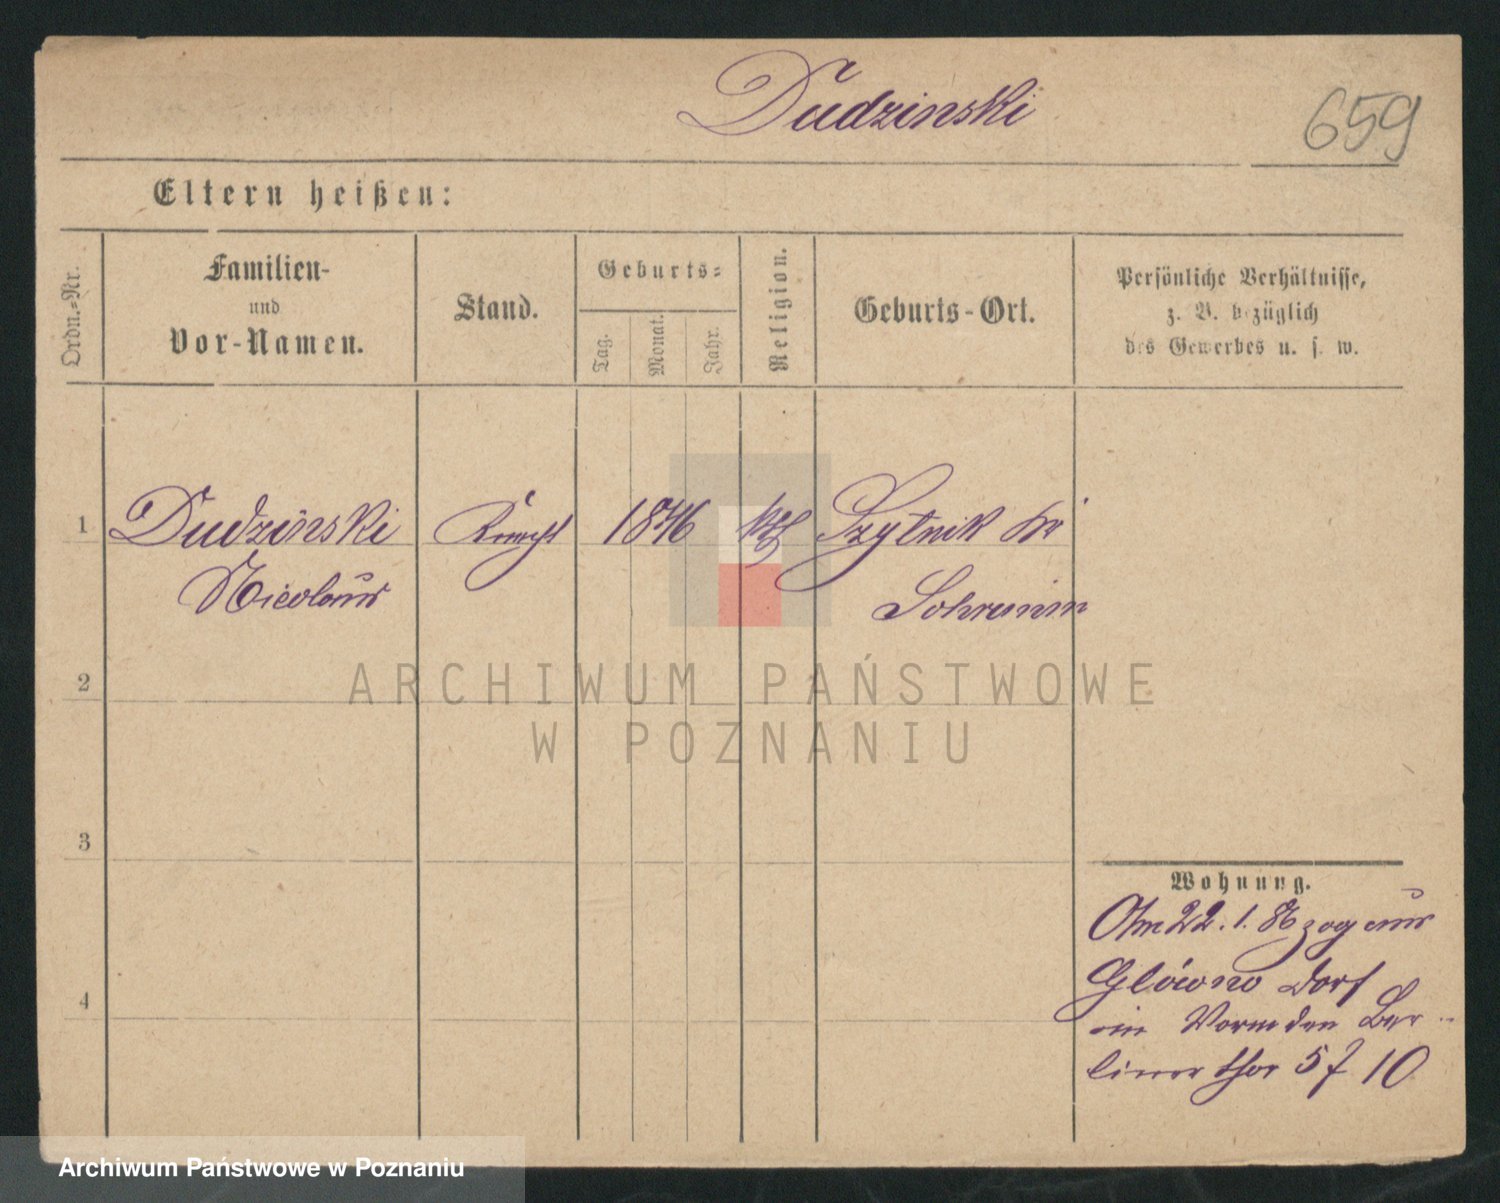 Dudzinski
659
Eltern heißen:
Ordn.-Nr.
Familien-
und
Vor-Namen.
Stand.
Geburts-
Tag.
Monat.
Jahr.
Religion.
Geburts-Ort.
Persönliche Verhältnisse,
z. B. bezüglich
des Gewerbes u. s. w.
1 Dudzinski Knecht 1846 kth Szytnik Kr
Nicolaus Schrimm
2
3
4
Wohnung.
Am 22. 1. 86 zog aus
Główno Dorf
in Vor den Ber-
liner thor 57 10
ARCHIWUM PAŃSTWOWE
W POZNANIU
Archiwum Państwowe w Poznaniu